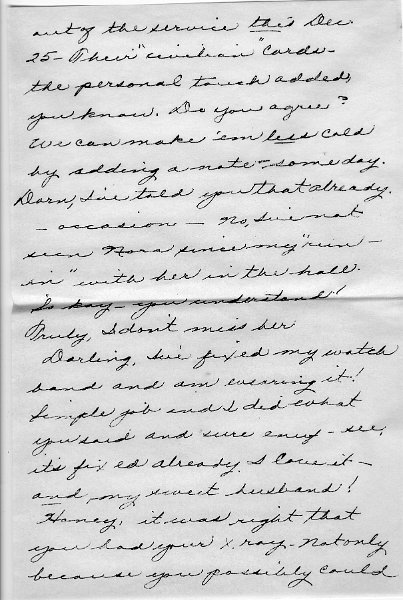 out of the service this Dec.
25 - Their "civilian" cards -
the personal touch added,
you know. Do you agree?
We can make 'em less cold
by adding a note - some day.
Darn, I've told you that already.
- occasion - No, I've not
seen Nora since my "run -
in" with her in the hall.
So kay - you understand!
Truly, I don't miss her
Darling, I've fixed my watch
band and am wearing it!
Simple job and I did what
you said and sure enuf - see,
it's fixed already. I love it -
and, my sweet husband!
Honey, it was right that
you had your X ray - Not only
because you possibly could